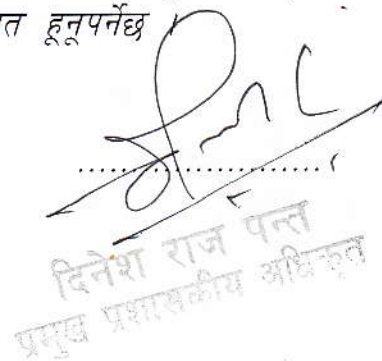 त हूनूपर्नेछ
........................
दिनेश राज पन्त
प्रमुख प्रशासकीय अधिकृत